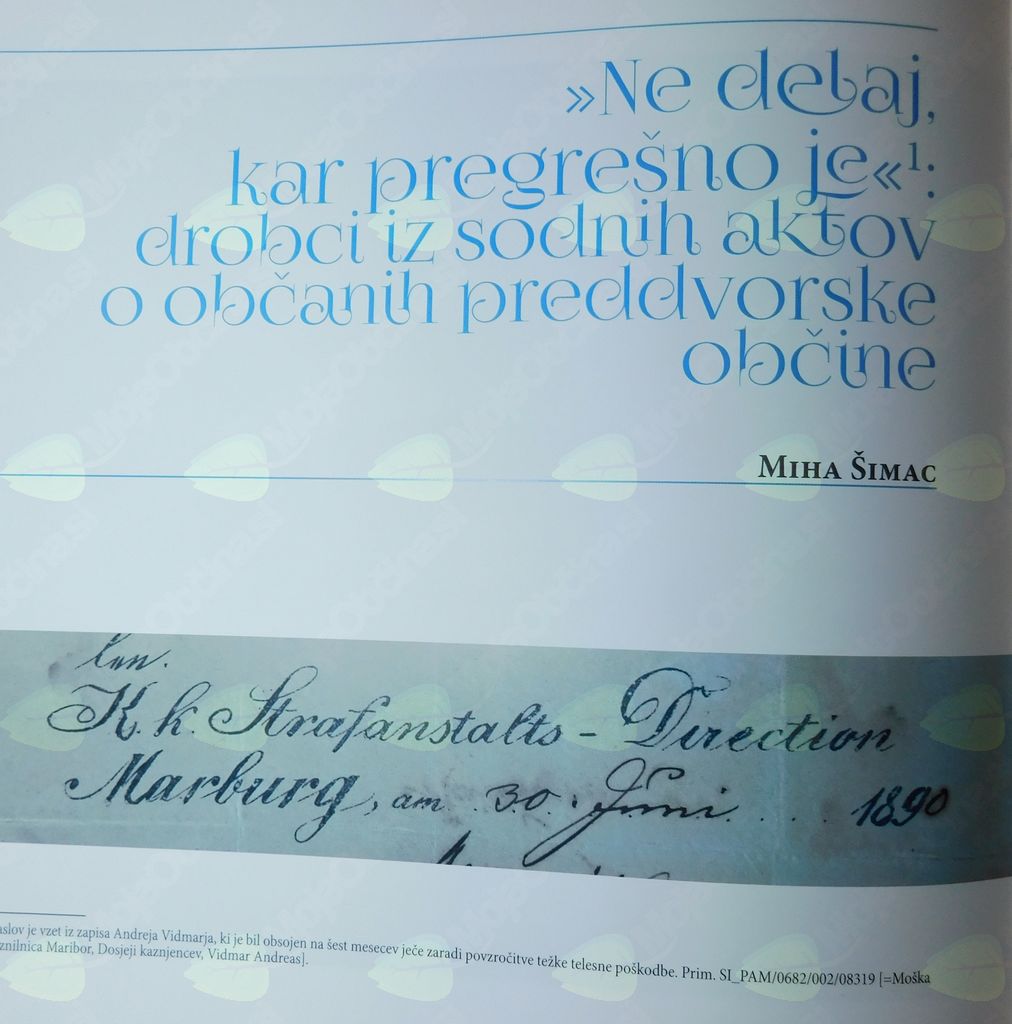 »Ne delaj,
kar pregrešno je«¹:
drobci iz sodnih aktov
o občanih preddvorske
občine
Miha Šimac
K. k. Strafanstalts - Direction
Marburg, am 30. Juni 1890
aslov je vzet iz zapisa Andreja Vidmarja, ki je bil obsojen na šest mesecev ječe zaradi povzročitve težke telesne poškodbe. Prim. SI_PAM/0682/002/08319 [=Moška
znilnica Maribor, Dosjeji kaznjencev, Vidmar Andreas].